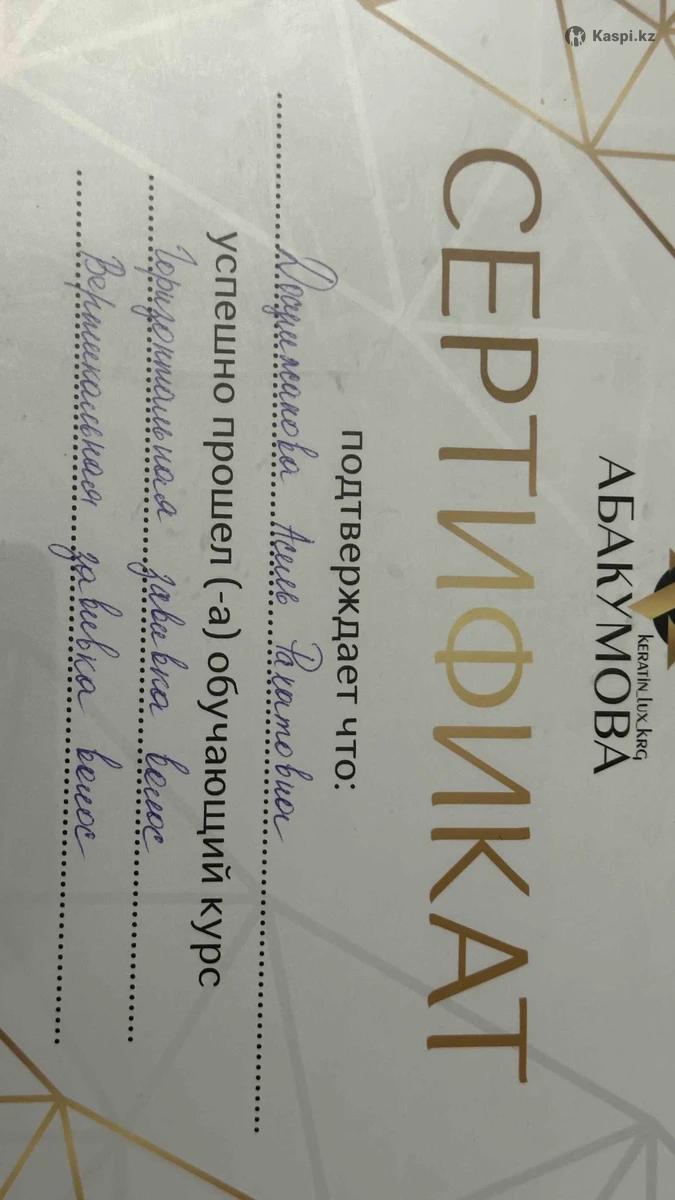 Kaspi.kz
KERATIN_LUX_KRG
АБАКУМОВА
СЕРТИФИКАТ
подтверждает что:
Асель Рахатовна
успешно прошел (-а) обучающий курс
Горизонтальная завивка волос
Вертикальная завивка волос